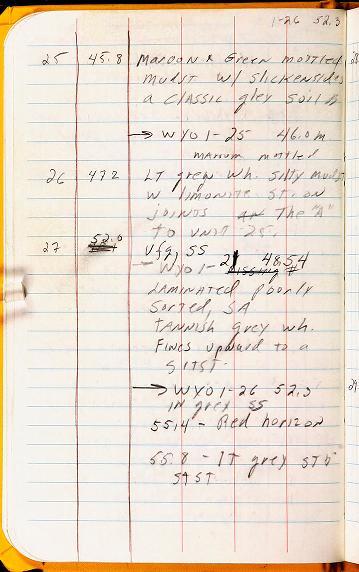 1-26 52.3
25 45.8 Maroon & Green mottled
mudst w/ slickensides
a classic gley soil B
→ WY01-25 46.0 m
maroon mottled
26 47.2 LT grey wh. silty mudst
w limonite st. on
joints The "A"
to unit 25.
27 52.0 Vfg SS
WY01-21 48.54
missing #
Laminated poorly
sorted, SA
tannish grey wh.
Fines upward to a
sltst.
→ WY01-26 52.3
in grey SS
55.4 - Red horizon
55.8 - lt grey